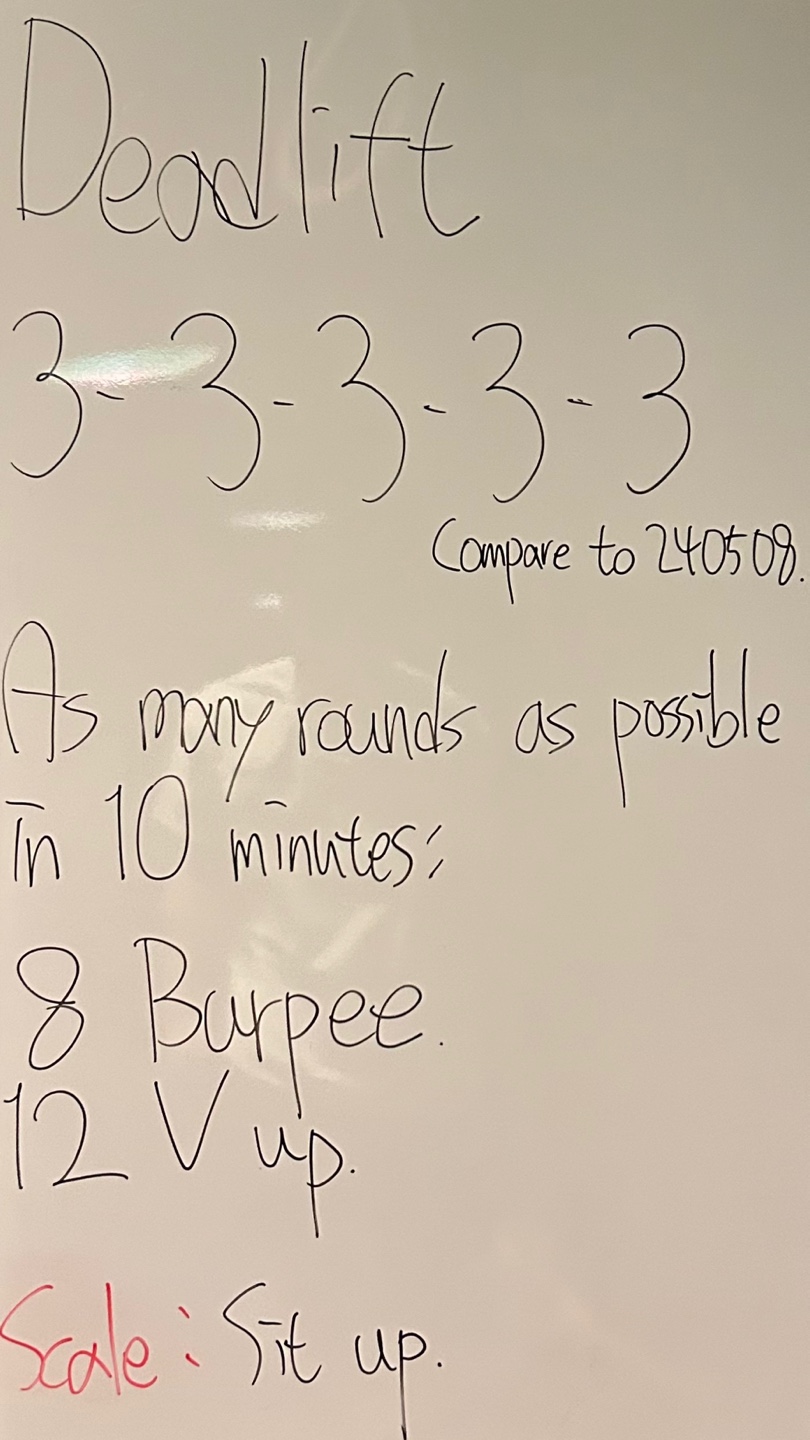 Deadlift
3-3-3-3-3
Compare to 240508.
As many rounds as possible
in 10 minutes:
8 Burpee.
12 V up.
Scale: Sit up.